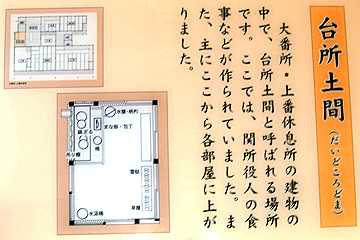 台所土間
(だいどころどま)
大番所・上番休息所の建物の
中で、台所土間と呼ばれる場所
です。ここでは、関所役人の食
事などが作られていました。ま
た、主にここから各部屋に上が
りました。
水甕・柄杓
まな板・包丁
桶
竈
吊り棚
草履
水浴桶